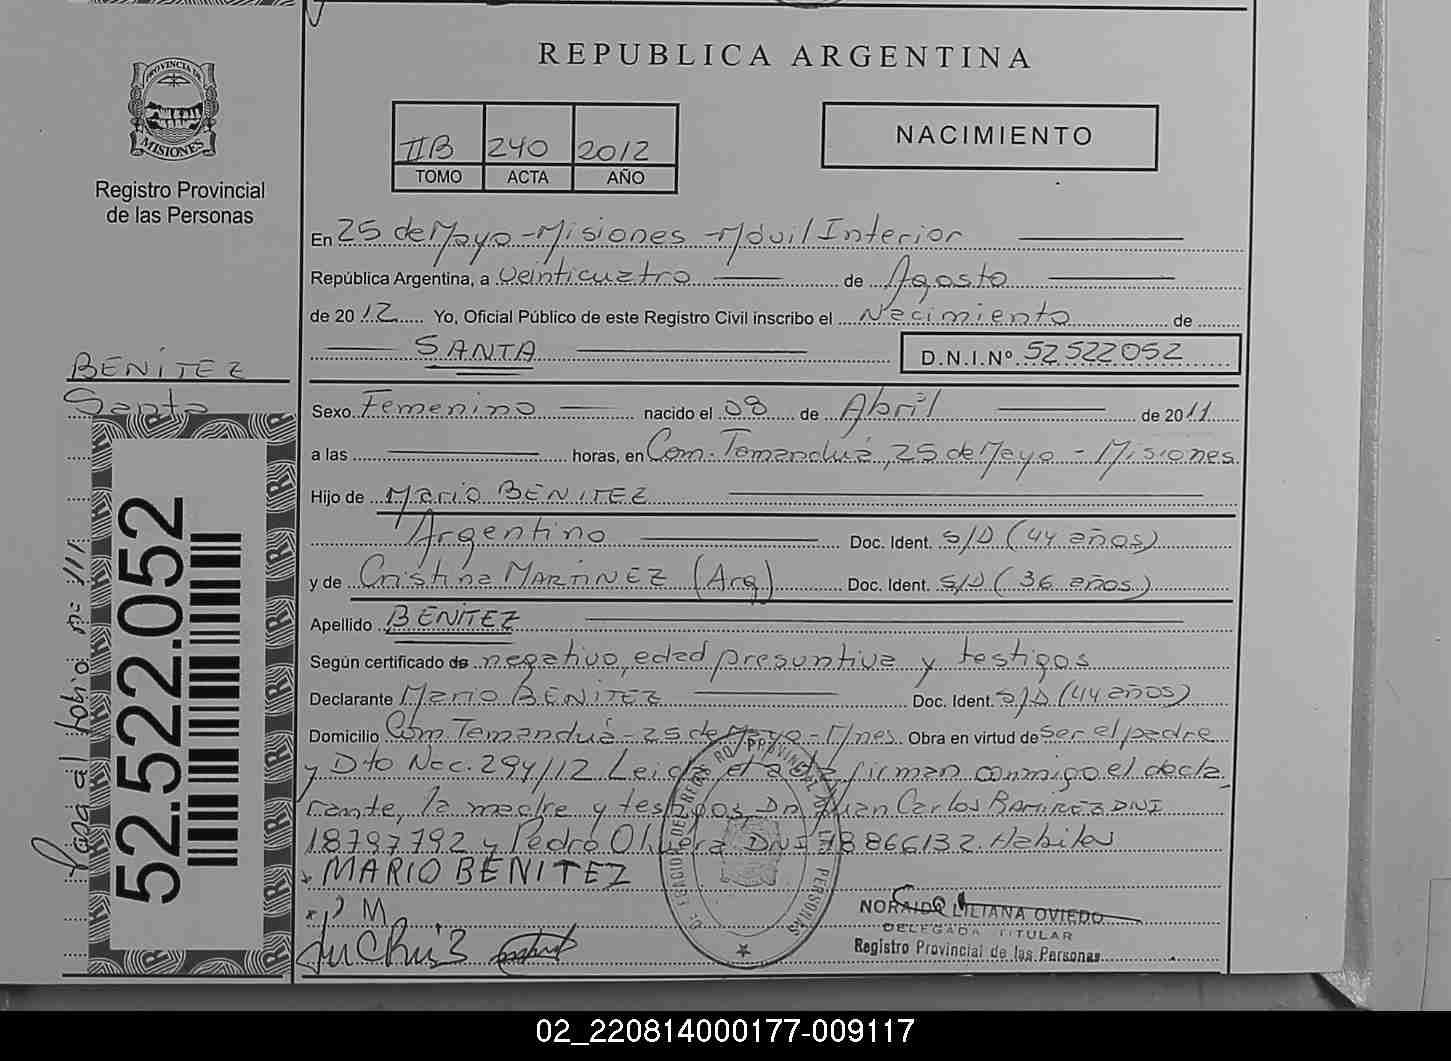 REPUBLICA ARGENTINA
PROVINCIA DE
MISIONES
Registro Provincial
de las Personas
IIB 240 2012
TOMO ACTA AÑO
NACIMIENTO
En 25 de Mayo - Misiones - Móvil Interior
República Argentina, a Veinticuatro de Agosto
de 2012 Yo, Oficial Público de este Registro Civil inscribo el Nacimiento de
SANTA D.N.I.Nº 52522052
BENÍTEZ
Santa
Sexo Femenino nacido el 08 de Abril de 2011
a las horas, en Com. Tamanduá, 25 de Mayo - Misiones
Hijo de Mario BENITEZ
Argentino Doc. Ident. S/D (44 años)
y de Cristina MARTINEZ (Arg) Doc. Ident. S/D (36 años)
Apellido BENITEZ
Según certificado de negativo, edad presuntiva y testigos
Declarante Mario BENITEZ Doc. Ident. S/D (44 años)
Domicilio Com. Tamanduá - 25 de Mayo - Mnes Obra en virtud de ser el padre
y Dto Nac. 294/12 Leida el acta firman conmigo el decla
rante, la madre y testigos Dn Juan Carlos RAMIREZ DNI
18797792 y Pedro Olivera DNI 18866132. Habiles
MARIO BENITEZ
M
NORAIDA LILIANA OVIEDO
DELEGADA TITULAR
Registro Provincial de las Personas
52.522.052
Pasa al folio nº 111
02_220814000177-009117